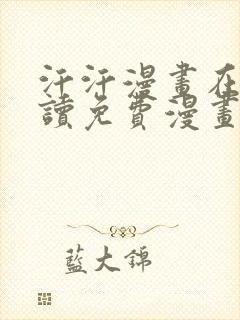 汗汗漫畫在
讀免費漫畫
藍大錦